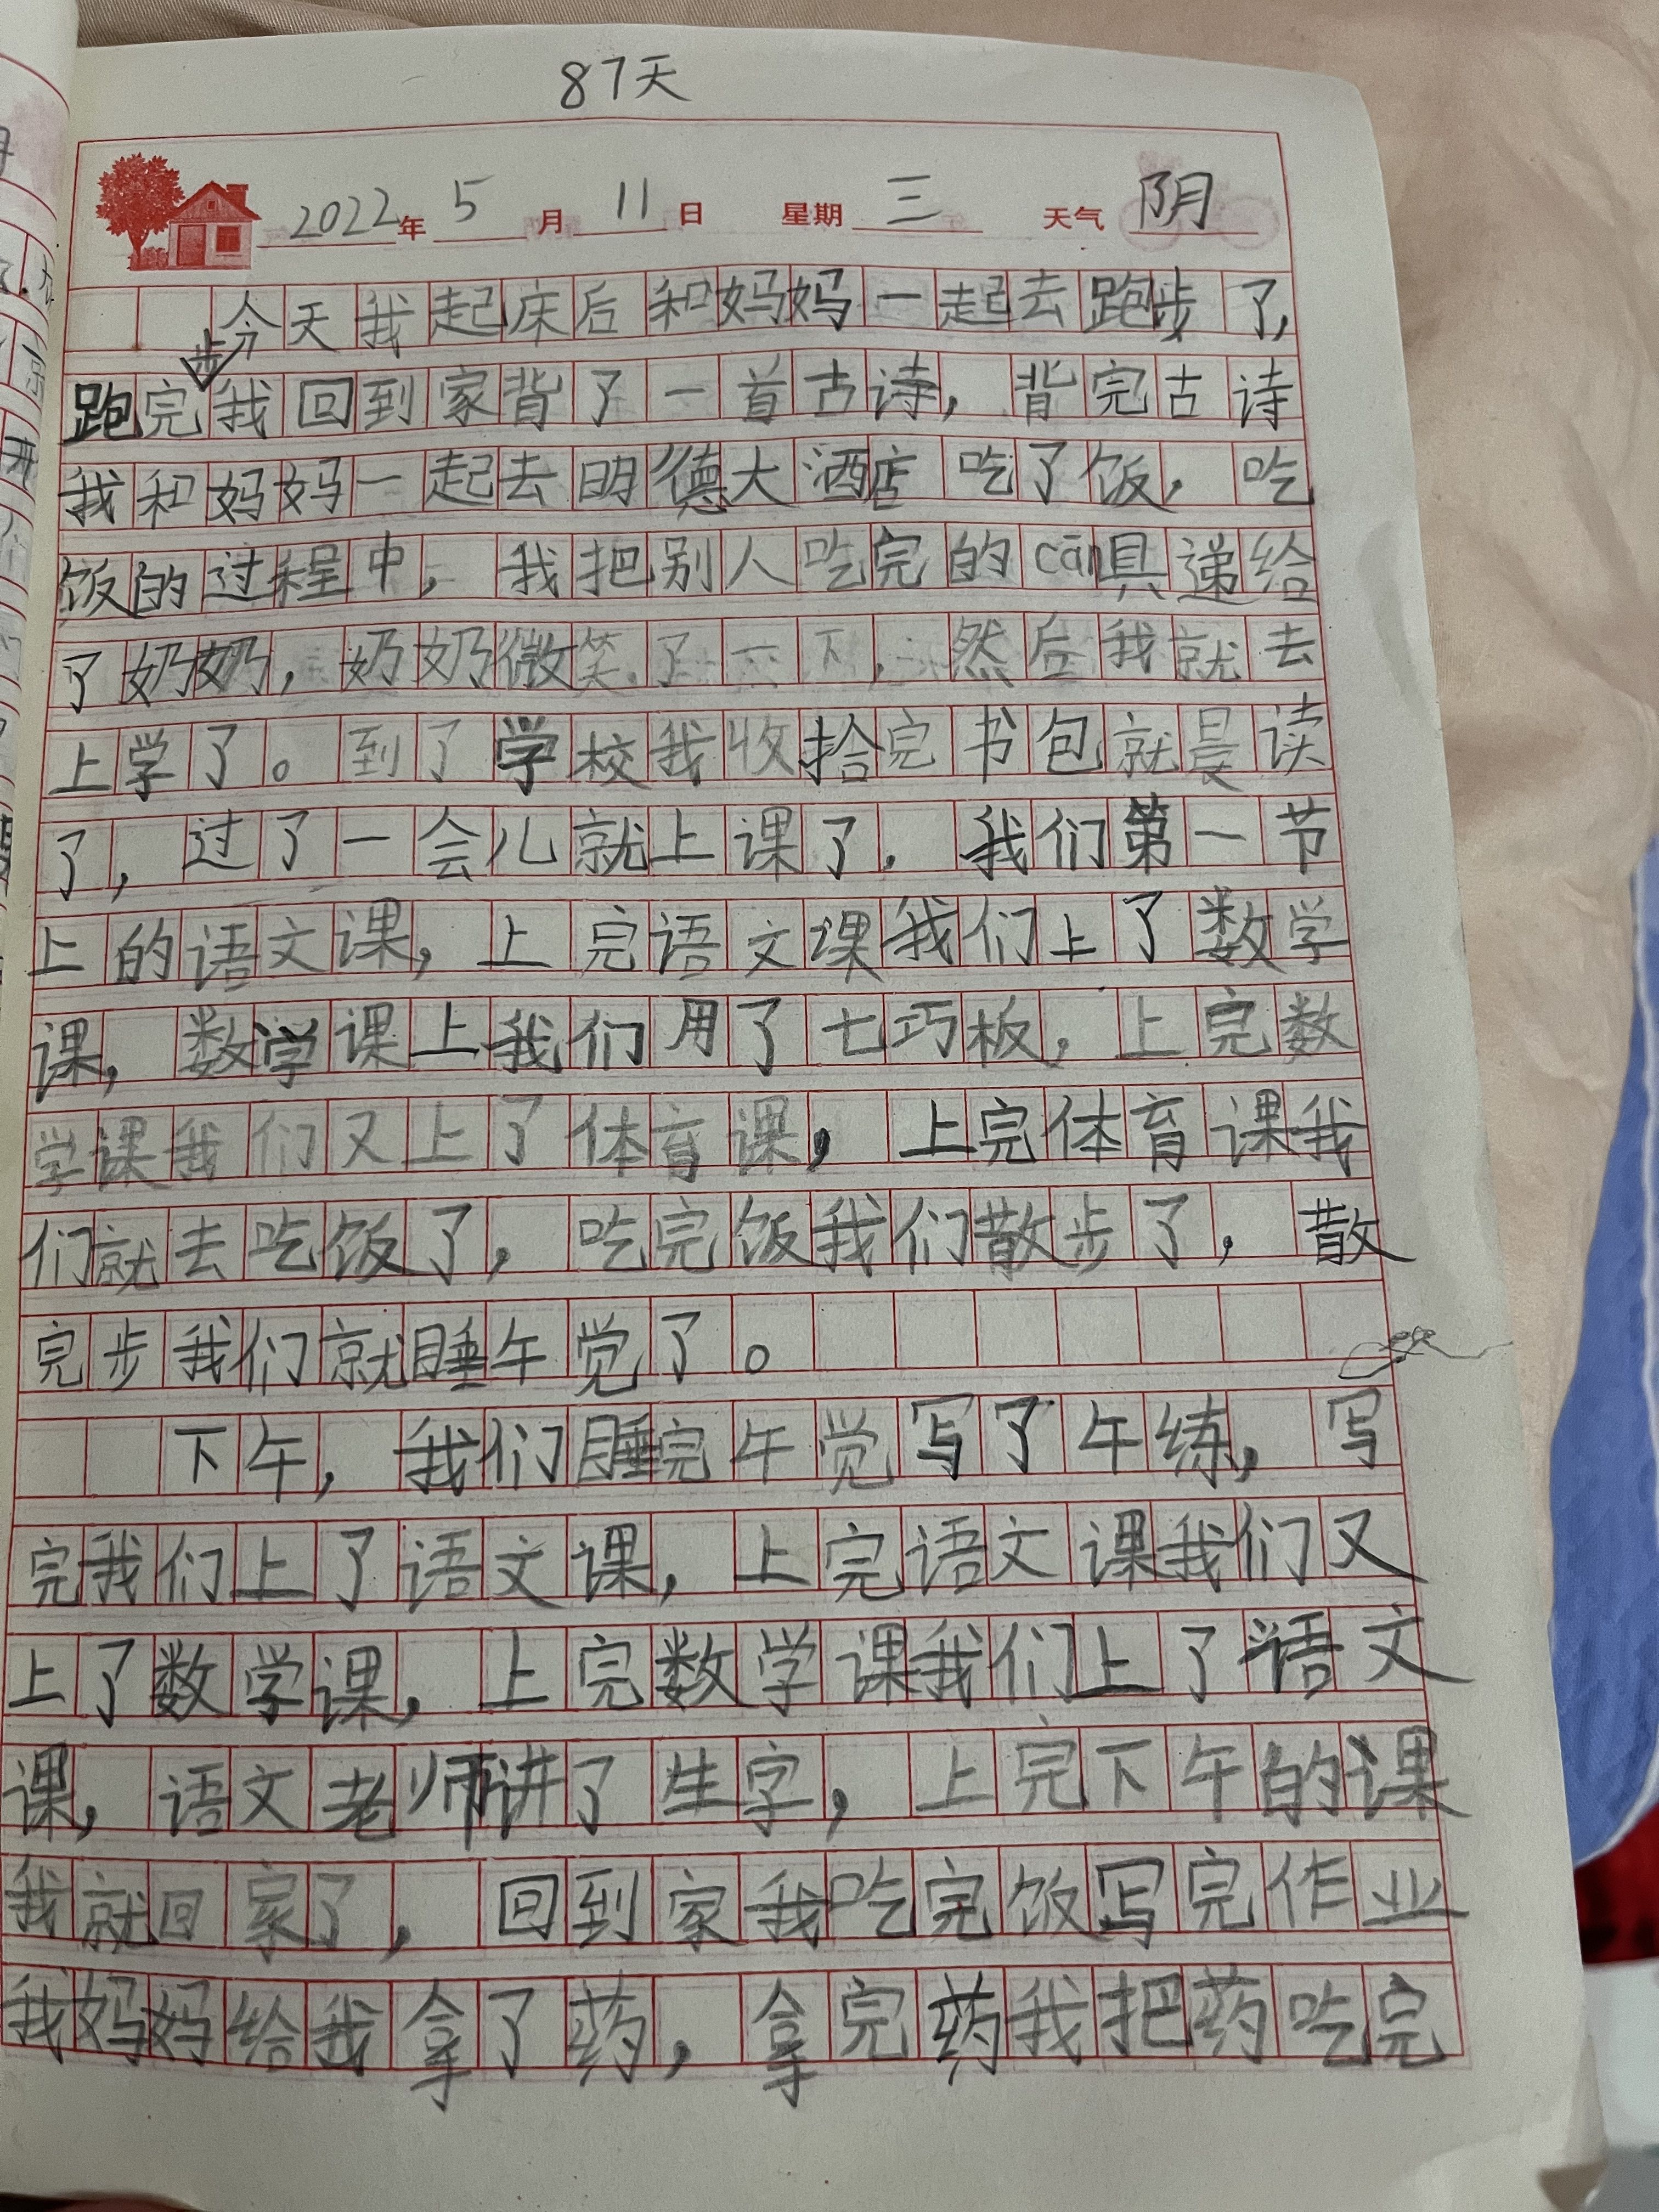 87天
2022年5月11日 星期三 天气阴
今天我起床后和妈妈一起去跑步了,
跑完步我回到家背了一首古诗,背完古诗
我和妈妈一起去明德大酒店吃了饭,吃
饭的过程中,我把别人吃完的cān具递给
了奶奶,奶奶微笑了一下,然后我就去
上学了。到了学校我收拾完书包就晨读
了,过了一会儿就上课了.我们第一节
上的语文课,上完语文课我们上了数学
课,数学课上我们用了七巧板,上完数
学课我们又上了体育课,上完体育课我
们就去吃饭了,吃完饭我们散步了,散
完步我们就睡午觉了。
下午,我们睡完午觉写了午练,写
完我们上了语文课,上完语文课我们又
上了数学课,上完数学课我们上了语文
课,语文老师讲了生字,上完下午的课
我就回家了,回到家我吃完饭写完作业
我妈妈给我拿了药,拿完药我把药吃完